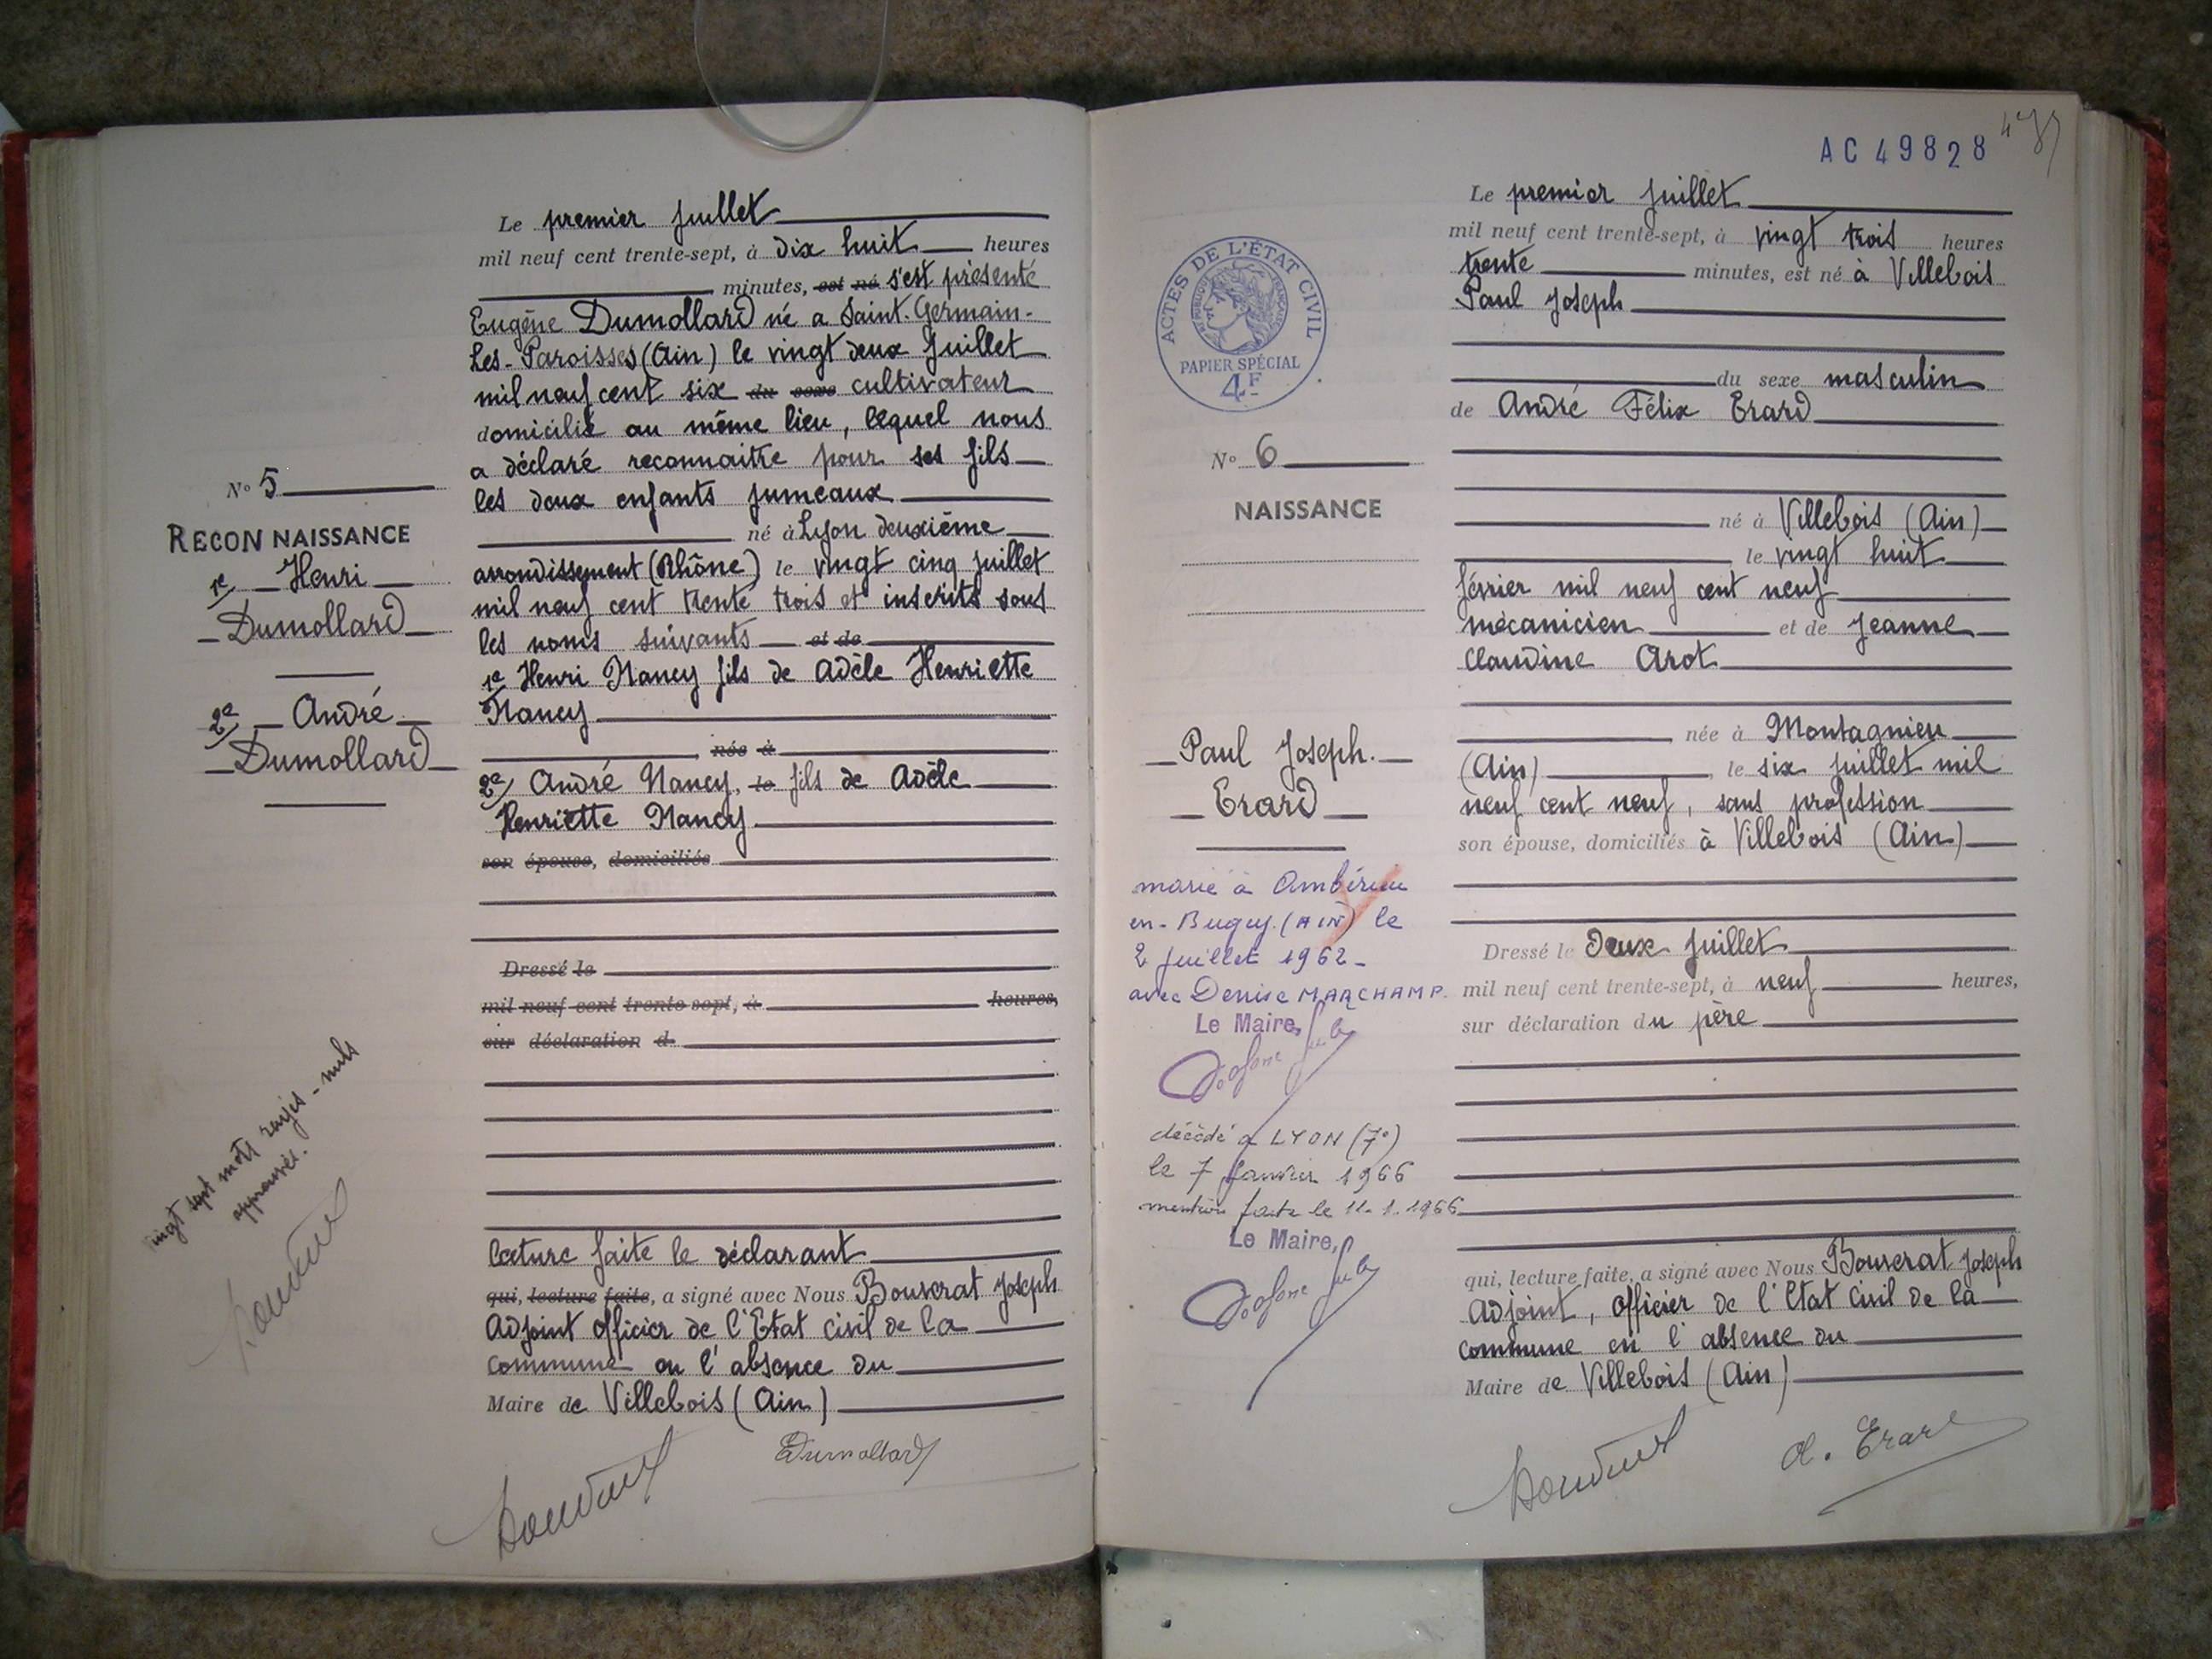 Le premier Juillet
mil neuf cent trente-sept, à dix huit heures
minutes, est né s'est présenté
Eugène Dumollard né a Saint-Germain-
Les-Paroisses (Ain) le vingt deux Juillet
mil neuf cent six du sexe cultivateur
domicilié au même lieu, lequel nous
a déclaré reconnaitre pour ses fils
les deux enfants jumeaux
né à Lyon deuxième
arrondissement (Rhône) le vingt cinq juillet
mil neuf cent trente trois et inscrits sous
les noms suivants et de
1e Henri Nancy fils de Adèle Henriette
Nancy
née à
2e André Nancy, le fils de Adèle
Henriette Nancy
son épouse, domiciliés
Dressé le
mil neuf cent trente-sept, à heures,
sur déclaration d
lecture faite le déclarant
qui, lecture faite, a signé avec Nous Bouvrat Joseph
Adjoint officier de l'Etat civil de la
commune en l'absence du
Maire de Villebois (Ain)
Dumollard
N° 5
RECONNAISSANCE
1e Henri
Dumollard
2e André
Dumollard
vingt sept mots rayés nuls
approuvés.
AC 49828
Le premier Juillet
mil neuf cent trente-sept, à vingt trois heures
trente minutes, est né à Villebois
Paul Joseph
du sexe masculin
de André Félix Erard
né à Villebois (Ain)
le vingt huit
février mil neuf cent neuf
mécanicien et de Jeanne
Claudine Arot
née à Montagnieu
(Ain), le six juillet mil
neuf cent neuf, sans profession
son épouse, domiciliés à Villebois (Ain)
Dressé le Deux Juillet
mil neuf cent trente-sept, à neuf heures,
sur déclaration du père
qui, lecture faite, a signé avec Nous Bouvrat Joseph
Adjoint, officier de l'Etat civil de la
commune en l'absence du
Maire de Villebois (Ain)
A. Erard
ACTES DE L'ÉTAT CIVIL
RÉPUBLIQUE FRANÇAISE
PAPIER SPÉCIAL
4F
N° 6
NAISSANCE
Paul Joseph.
Erard
marié à Ambérieu
en-Bugey (AIN) le
2 Juillet 1962
avec Denise MARCHAMP.
Le Maire,
décédé à LYON (7e)
le 7 Janvier 1966
mention faite le 11.1.1966
Le Maire,